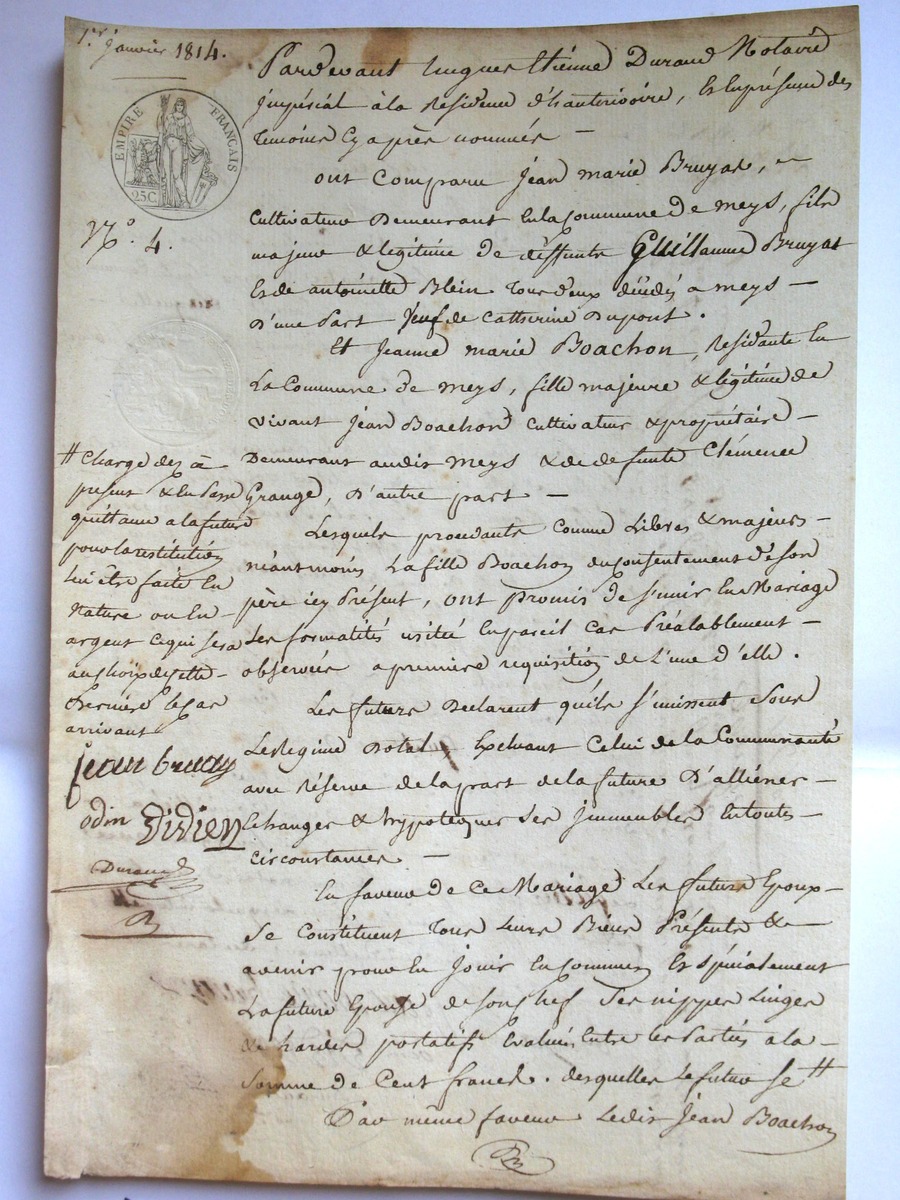 1er Janvier 1814.
EMPIRE FRANÇAIS
25 C.
No. 4.
Pardevant hugues Etienne Durand Notaire
impérial à la Residence d'hauterivoire, Et En présence des
temoins Cy après nommés —
ont Comparu Jean marie Bruyat,
Cultivateur Demeurant En la Commune de meys, fils
majeur & legitime de deffunts Guillaume Bruyat
Et de antoinette Blein tous d'eux décédés a meys —
D'une Part Veuf de Catherine Dupont.
Et Jeanne marie Boachon, Residante En
La Commune de meys, fille majeure & legitime de
vivant Jean Boachon Cultivateur & propriétaire —
Demeurant audit meys & de defunte Clémence
Grange, D'autre part —
Lesquels procedants Comme Libres & majeurs —
néantmoins La fille Boachon du Consentement de son
père icy Présent, ont promis de s'unir En Mariage
Les formalités usitées En pareil Cas Préalablement —
observées a premiere requisition de L'une d'elle.
Les futurs Declarent qu'ils s'unissent Sous
Le Regime Dotal Excluant Celui de la Communauté
avec Réserve de la part de la future D'alliéner —
Echanger & hypotequer Ses Immeubles En toutes
Circonstances —
En faveur de Ce Mariage Les futurs Epoux —
Se Constituent Tous Leurs Biens Présents &
avenir pour En Jouir En Commun Et Spécialement
La future Epouse de son Chef Ses nippes Linges
& hardes portatifs Evalués Entre les Parties a la —
Somme de Cent francs. desquelles Le futur se #
D'av même faveur Ledit Jean Boachon
# Charge des à
present & En Passe
quittance a la future
pour la restitution
Lui être faite En
Nature ou En
argent Ce qui sera
au Choix de Cette —
Derniere le Cas
arrivant
jean bruay
odin Didier
Durand